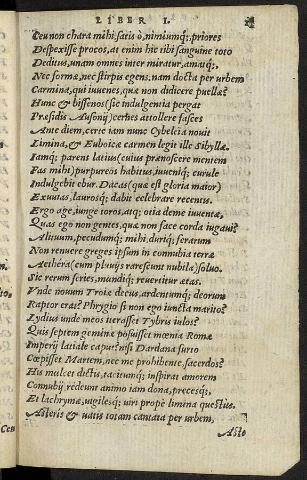 LIBER I.
Ceu non chara mihi, satis ô, nimiumq;, priores
Despexisse procos, at enim hic tibi sanguine toto
Deditus, unam omnes inter miratur, amatq;,
Nec formæ, nec stirpis egens, nam docta per urbem
Carmina, qui iuuenes, quæ non didicere puellæ?
Hunc & bissenos (sic indulgentia pergat
Præsidis Ausonij) cernes attollere fasces
Ante diem, certe iam nunc Cybeleia nouit
Limina, & Euboicæ carmen legit ille Sibyllæ.
Iamq; parens latius (cuius prænoscere mentem
Fas mihi) purpureos habitus, iuuenîq; curule
Indulgebit ebur. Dacas (quæ est gloria maior)
Exuuias, laurosq; dabit celebrare recentes.
Ergo age, iunge toros, atq; otia deme iuuentæ,
Quas ego non gentes, quæ non face corda iugaui?
Alituum, pecudumq; mihi, duriq; ferarum
Non renuere greges ipsum in connubia terræ
Aethera (cum pluuijs rarescunt nubila) soluo.
Sic rerum series, mundiq; reuertitur ætas.
Vnde nouum Troiæ decus, ardentumq; deorum
Raptor erat? Phrygio si non ego iuncta marito?
Lydius unde meos iterasset Tybris iulos?
Quis septem geminæ posuisset mœnia Romæ
Imperij latiale caput? nisi Dardana furto
Cœpisset Martem, nec me prohibente, sacerdos?
His mulcet dictis, tacitumq; inspirat amorem
Connubij, redeunt animo iam dona, precesq;,
Et lachrymæ, uigilesq; uiri propè limina questus.
Asteris & uatis totam cantata per urbem,
Aste